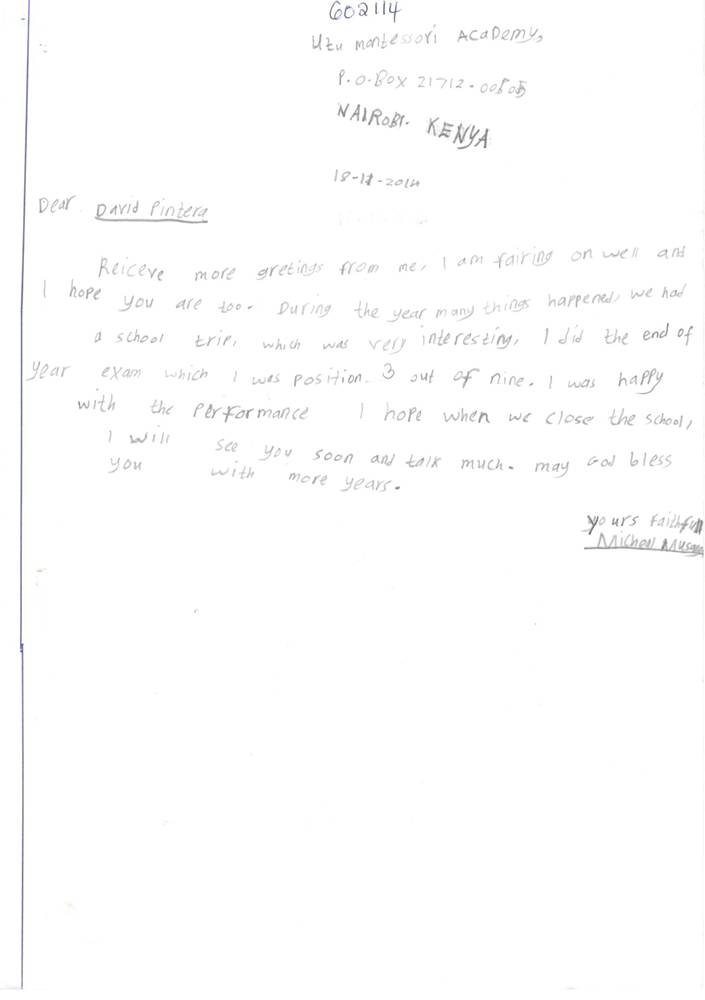 602114
Utu montessori Academy,
P.O.Box 21712-00505
NAIROBI- KENYA
18-11-2014
Dear David Pintera
Reiceve more gretings from me, I am fairing on well and
I hope you are too. During the year many things happened, we had
a school trip, which was very interesting, I did the end of
year exam which I was position 3 out of nine. I was happy
with the performance I hope when we close the school,
I will see you soon and talk much. may God bless
you with more years.
yours faithfull
Michael